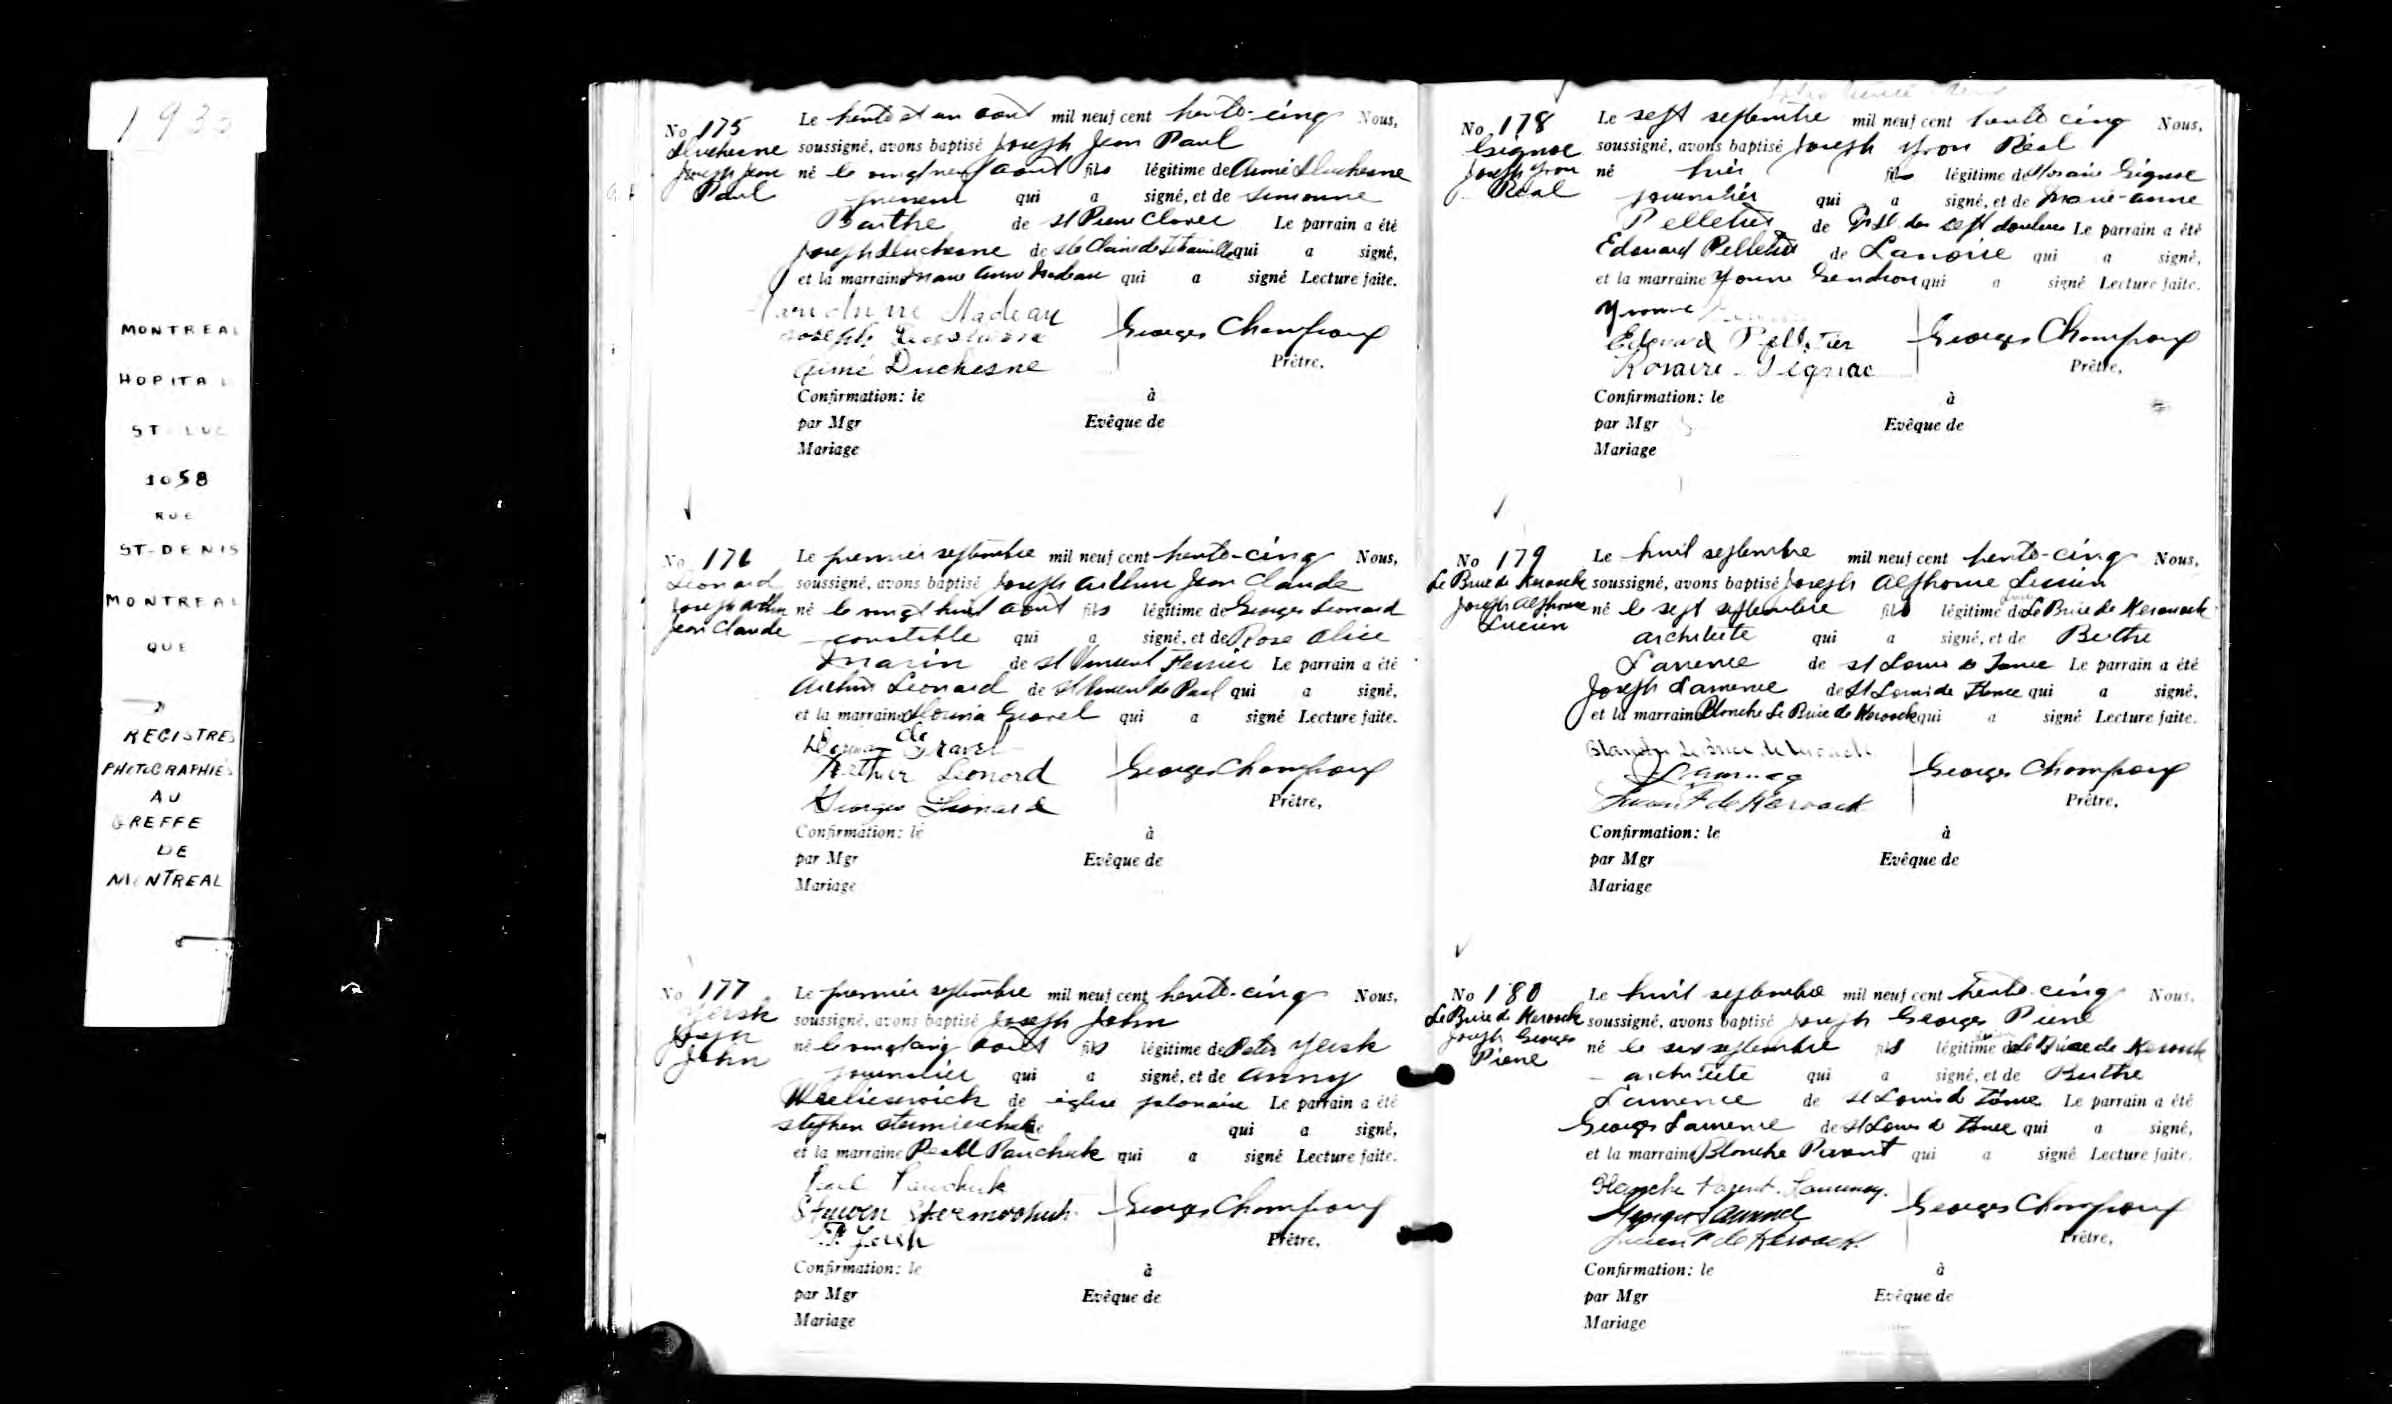 1935
MONTREAL
HOPITAL
ST-LUC
1058
RUE
ST-DENIS
MONTREAL
QUE
REGISTRES
PHOTOGRAPHIÉS
AU
GREFFE
DE
MONTREAL
No 175
Duchesne
Joseph Jean
Paul
Le trente et un août mil neuf cent trente-cinq Nous,
soussigné, avons baptisé Joseph Jean Paul
né le vingt neuf août fils légitime de Aimé Duchesne
qui a signé, et de Simonne
Barthe de St Pierre Claver Le parrain a été
Joseph Duchesne de Ste Claire de Tétraultville qui a signé,
et la marraine Marie Anne Nadeau qui a signé Lecture faite.
Nadeau
Joseph Duchesne
Aimé Duchesne
Georges Champoux
Prêtre,
Confirmation: le à
par Mgr Evêque de
Mariage
No 176
Léonard
Joseph Arthur
Jean Claude
Le premier septembre mil neuf cent trente-cinq Nous,
soussigné, avons baptisé Joseph Arthur Jean Claude
né le vingt huit août fils légitime de Georges Leonard
constable qui a signé, et de Rose Alice
Marin de St Vincent Ferrier Le parrain a été
Arthur Leonard de St Vincent de Paul qui a signé,
et la marraine Gravel qui a signé Lecture faite.
Gravel
Arthur Leonard
Georges Léonard
Georges Champoux
Prêtre,
Confirmation: le à
par Mgr Evêque de
Mariage
No 177
Yersk
Joseph
John
Le premier septembre mil neuf cent trente-cinq Nous,
soussigné, avons baptisé Joseph John
né le vingt cinq août fils légitime de Peter Yersk
journalier qui a signé, et de Anny
de église polonaise Le parrain a été
Stephen de qui a signé,
et la marraine Pearl Panchuk qui a signé Lecture faite.
Pearl Panchuk
Georges Champoux
Prêtre,
Confirmation: le à
par Mgr Evêque de
Mariage
No 178
Gignac
Joseph Yvon
Réal
Le sept septembre mil neuf cent trente cinq Nous,
soussigné, avons baptisé Joseph Yvon Réal
né hier fils légitime de Rosaire Gignac
journalier qui a signé, et de Marie-Anne
Pelletier de N.D. des sept douleurs Le parrain a été
Edouard Pelletier de Lanoraie qui a signé,
et la marraine Yvonne Gendron qui a signé Lecture faite.
Yvonne
Edouard Pelletier
Rosaire Gignac
Georges Champoux
Prêtre,
Confirmation: le à
par Mgr Evêque de
Mariage
No 179
Le Brice de Keroack
Joseph Alphonse
Lucien
Le huit septembre mil neuf cent trente-cinq Nous,
soussigné, avons baptisé Joseph Alphonse Lucien
né le sept septembre fils légitime de Le Brice de Keroack
architecte qui a signé, et de Berthe
Lamence de St Louis de France Le parrain a été
Joseph Lamence de St Louis de France qui a signé,
et la marraine Blanche Le Brice de Keroack qui a signé Lecture faite.
Blanche Le Brice de Keroack
Lucien de Keroack
Georges Champoux
Prêtre,
Confirmation: le à
par Mgr Evêque de
Mariage
No 180
Le Brice de Keroack
Joseph Georges
Pierre
Le huit septembre mil neuf cent trente-cinq Nous,
soussigné, avons baptisé Joseph Georges Pierre
né le six septembre fils légitime de Le Brice de Keroack
architecte qui a signé, et de Berthe
Lamence de St Louis de France Le parrain a été
Georges Lamence de St Louis de France qui a signé,
et la marraine Blanche qui a signé Lecture faite.
Blanche
Georges
Lucien de Keroack
Georges Champoux
Prêtre,
Confirmation: le à
par Mgr Evêque de
Mariage